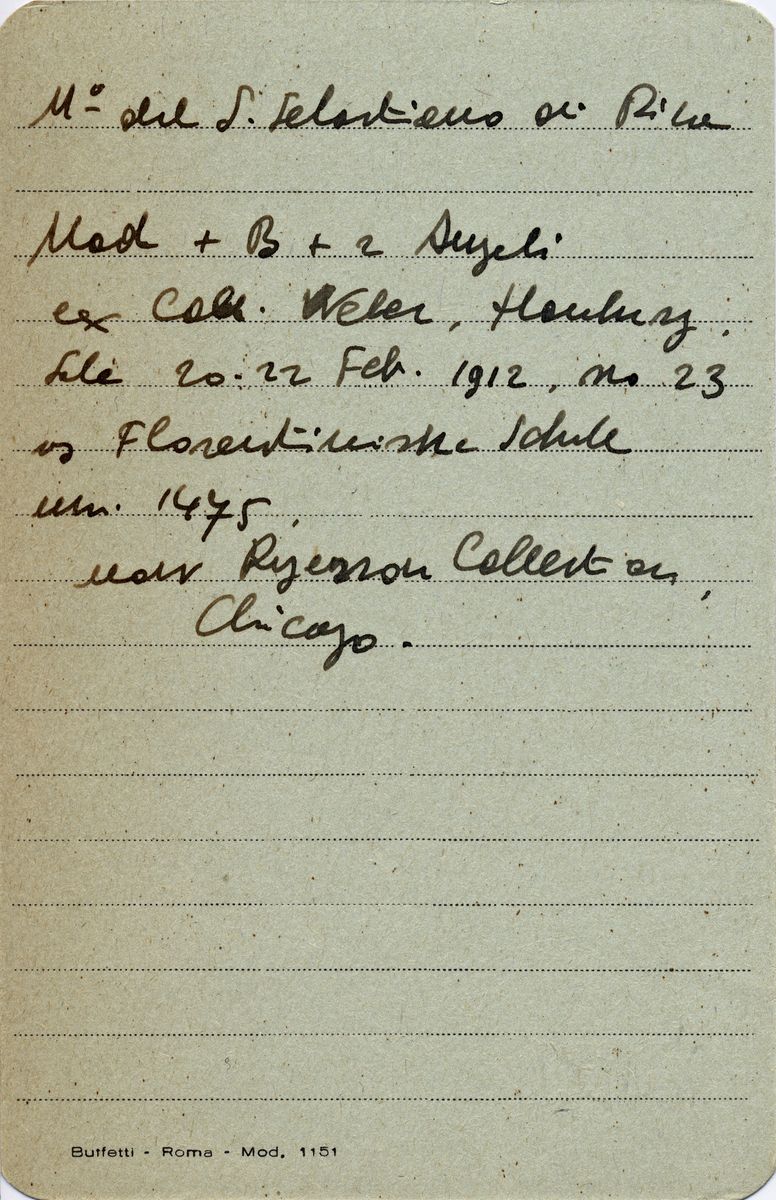 Mº del S. Sebastiano di
Mad + B + 2 Angeli
ex Coll. Weber, Hamburg,
Sale 20-22 Feb. 1912, no 23
as Florentinische Schule
um. 1475,
now Ryerson Collection,
Chicago.
Buffetti - Roma - Mod. 1151